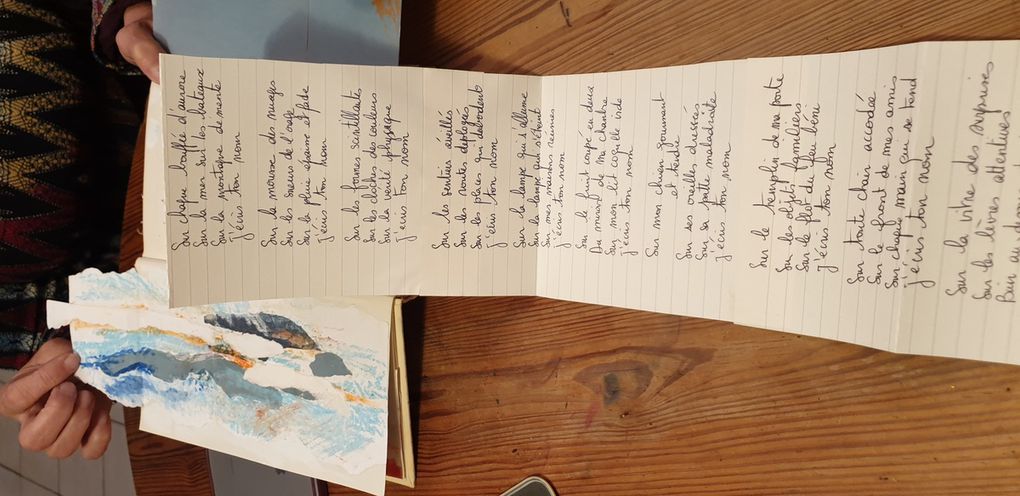 Sur chaque bouffée d'aurore
Sur la mer sur les bateaux
Sur la montagne demente
j'écris ton nom
Sur la mousse des nuages
Sur les sueurs de l'orage
Sur la pluie épaisse et fade
j'écris ton nom
Sur les formes scintillantes
Sur les cloches des couleurs
Sur la vérité physique
j'écris ton nom
Sur les sentiers éveillés
Sur les routes déployées
Sur les places qui débordent
j'écris ton nom
Sur la lampe qui s'allume
Sur la lampe qui s'éteint
Sur mes maisons réunies
j'écris ton nom
Sur le fruit coupé en deux
Du miroir et de ma chambre
Sur mon lit coquille vide
j'écris ton nom
Sur mon chien gourmand
et tendre
Sur ses oreilles dressées
Sur sa patte maladroite
j'écris ton nom
Sur le tremplin de ma porte
Sur les objets familiers
Sur le flot du feu béni
j'écris ton nom
Sur toute chair accordée
Sur le front de mes amis
Sur chaque main qui se tend
j'écris ton nom
Sur la vitre des surprises
Sur les lèvres attentives
Bien au